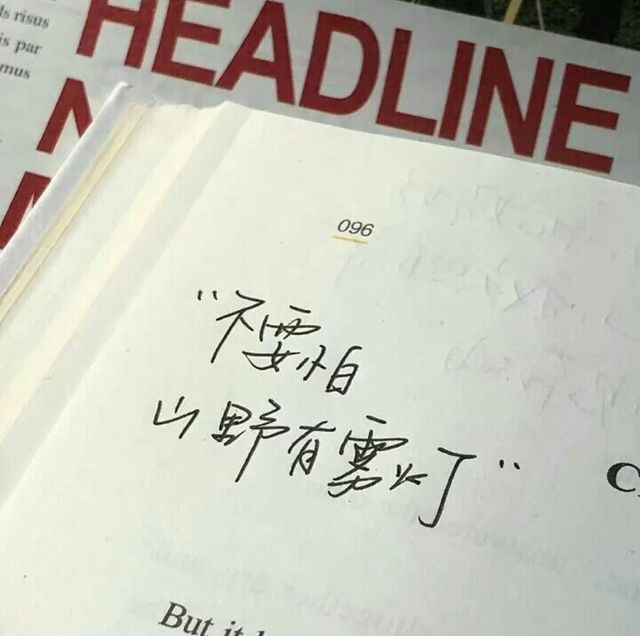 ls risus
is par
mus
HEADLINE
096
“不要怕
山野有雾灯”
But it